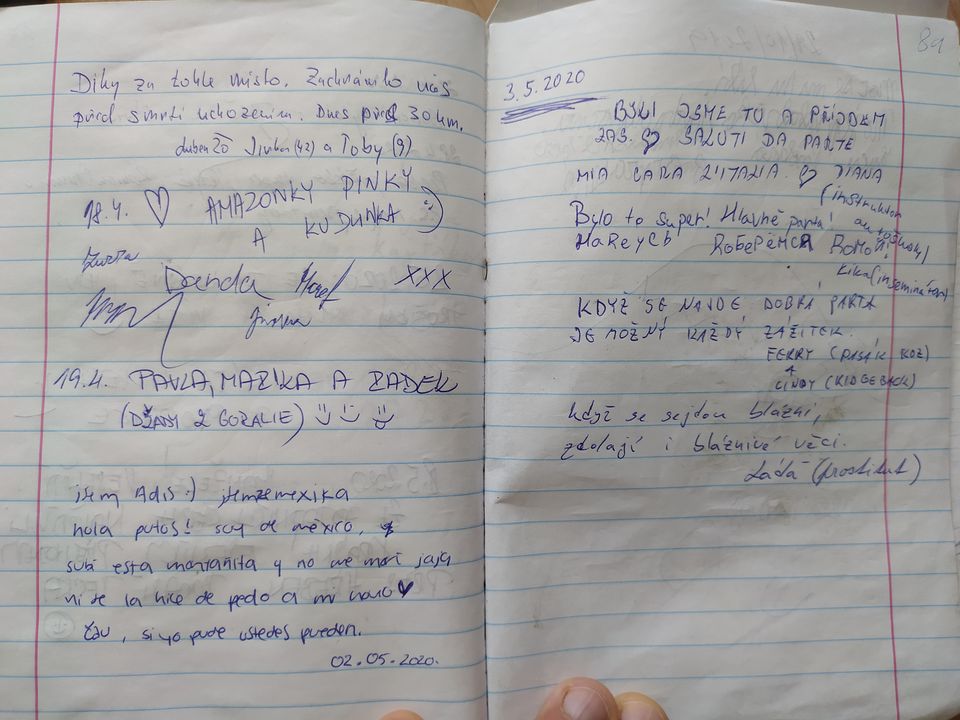 Díky za tohle místo. Zachránilo nás
před smrtí uchozením. Dnes před 30 km.
duben 20 Jivka (42) a Toby (9)
18.4. ♡ AMAZONKY PINKY
A KUDLINKA :)
Danda XXX
19.4. PAVLA, MAZIKA A RADEK
(DŽADY Z GORALIE)
jsem Adis :) jsem ze mexika
hola putos! soy de méxico,
subí esta montañita y no me morí jaja
ni se la hice de pedo a mi novio ♥
čau, si yo pude ustedes pueden.
02.05.2020.
89
3.5.2020
BYLI JSME TU A PŘIJDEM
ZAS. ♡ SALUTI DA PARTE
MIA CARA L'ITALIA. ♡ DIANA
(instruktor
Bylo to super! Hlavně parta!
Kika (inseminátor)
KDYŽ SE NAJDE DOBRÁ PARTA
JE MOŽNÝ KAŽDÝ ZÁŽITEK.
FERRY (PASÁK KOZ)
+
CINDY (RIDGEBACK)
Když se sejdou blázni,
zdolají i bláznivé věci.
Láďa (prostitut)